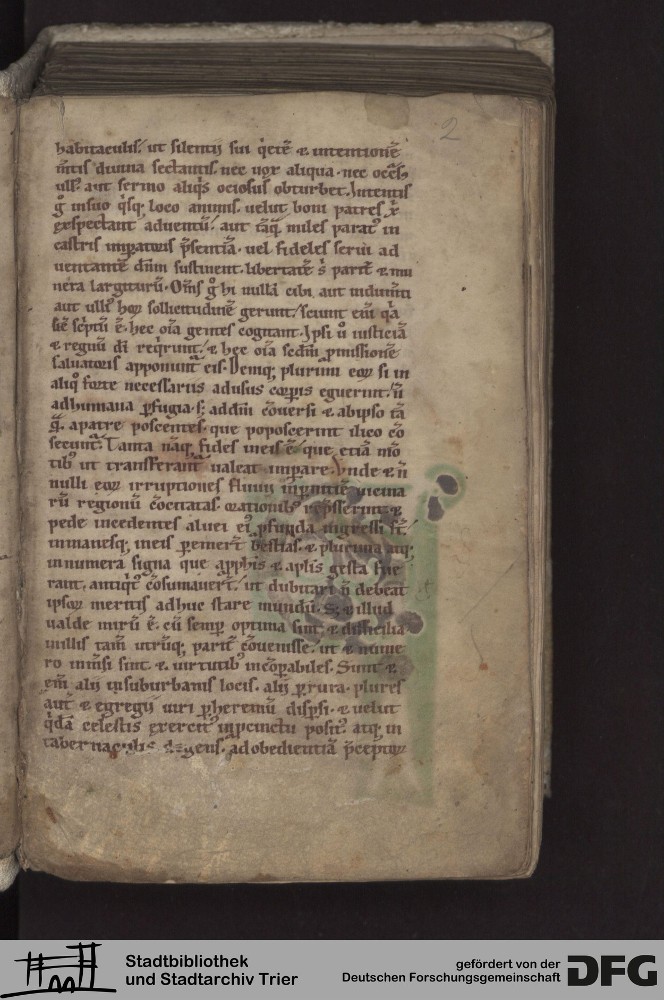 2
habitaculis. ut silentii sui q̇etē ⁊ intentionē
m̄tis diuina sectantis. nec uox aliqua. nec occs̄ꝰ
ullꝰ. aut sermo aliq̇s ociosus obturbet. Intentis
g̊ in suo q̇sq; loco animis. uelut boni patres xp̄i
exspectant aduentū. aut tāq̄ miles paratꝰ in
castris imꝑatoris p̄sentiā. uel fideles serui ad
uentantē dn̄m sustinent. libertatē s̄ parit̄ ⁊ mu
nera largiturū. Om̄s g̊ hi nullā cibi aut indum̄ti
aut ulliꝰ hoꝝ sollicitudinē gerunt. sciunt eni᷒ q̇a
sic̄ sc̄ptū ē. hec oīa gentes cogitant. Ipsi ů iusticiā
⁊ regnū di̅ req̇runt. ⁊ hec oīa scdm̄ p̱missionē
saluatoris apponunt̄ eis. Deniq; plurimi eoꝝ si in
aliq̊ forte necessariis ad usus corꝑis eguerint. n̄
ad humana ꝑfugia. s; ad dm̄ cōuersi ⁊ ab ipso tā
q̄. a patre poscentes. que poposcerint ilico cō
secunt̄. Tanta nāq; fides in eis ē. que etiā mo̅
tibꝰ ut transferant̄ ualeat imꝑare. Vnde ⁊ n̄
nulli eoꝝ irruptiones fluuii in ꝑnitiē uicina
rū regionū cōcitatas. orationibꝰ rep̄sserint. ⁊
pede incedentes aluei eiꝰ ꝓfunda ingressi st̄.
inmanesq; in eis ꝑemert̄ bestias. ⁊ plurima atq;
innumera signa que a ꝓphis ⁊ aplis gesta fue
rant. antiq̇tꝰ cōsumauert̄. ut dubitari n̄ debeat
ipsoꝝ meritis adhuc stare mundū. S; ⁊ illud
ualde mirū ē. cū semꝑ optima sint. ⁊ difficilia
in illis tam̄ utrūq; parit̄ cōuenisse. ut ⁊ nume
ro inm̄si sint ⁊. uirtutibꝰ incōꝑabiles. Sunt ⁊
em̄ alii in suburbanis locis. alii ꝑ rura. plures
aut̄ ⁊ egregii uiri ꝑ heremū disꝑsi. ⁊ uelut
q̇dā celestis exercitꝰ in ꝓcinctu positꝰ. atq; in
tabernaculis degens. ad obedientiā p̄ceptoꝝ
Stadtbibliothek
und Stadtarchiv Trier
gefördert von der
Deutschen Forschungsgemeinschaft
DFG